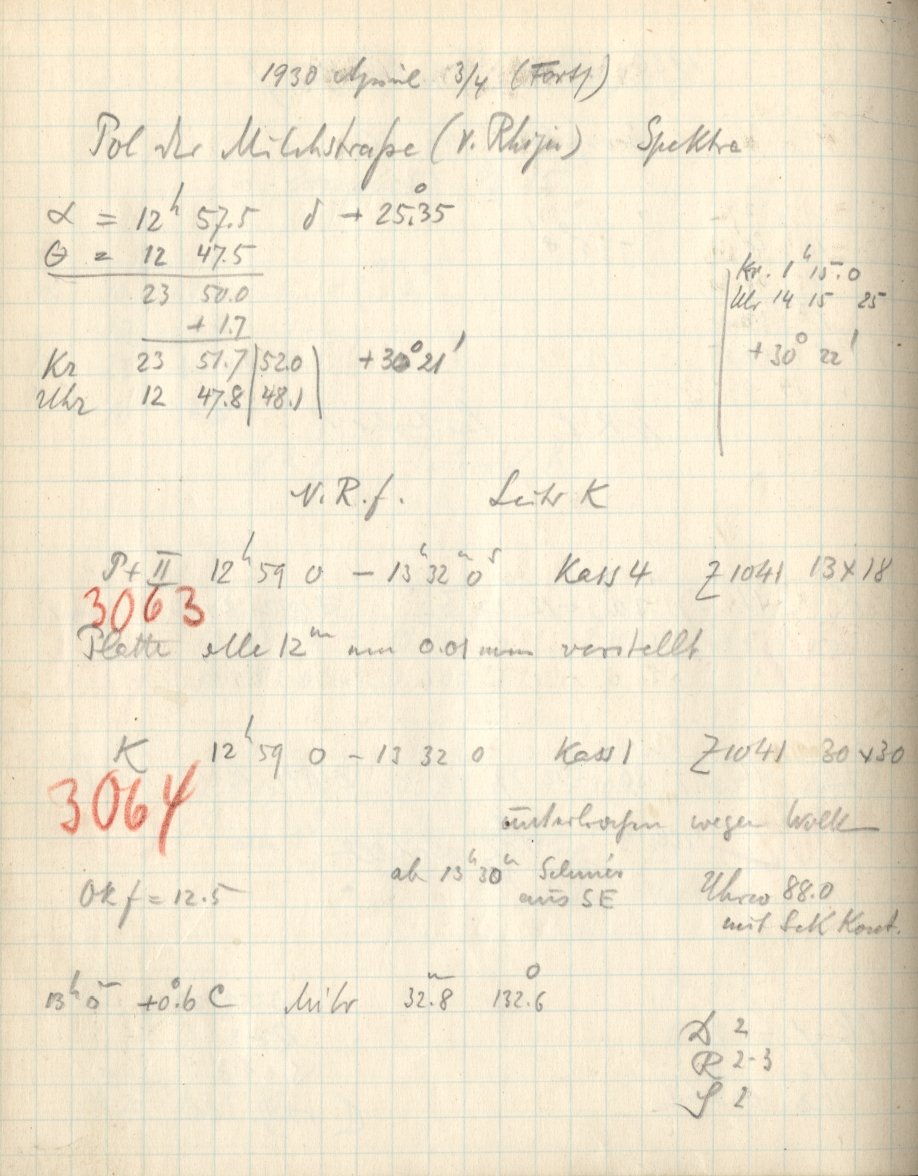 1930 April 3/4 (Forts)
Pol der Milchstraße (v. Rhijn) Spektra
α = 12ʰ 57.5 δ + 25.°35
Θ = 12 47.5
23 50.0
+ 1.7
Kr 23 51.7 | 52.0 | +30° 21'
Uhr 12 47.8 | 48.1
Kr. 1ʰ 15.0
Uhr 14 15 25
+30° 22'
N.R.f. Leitr K
P+II 12ʰ 59 0 – 13ʰ 32ᵐ 0ˢ Kass 4 Z 1041 13×18
3063
Platte alle 12ᵐ um 0.01 mm verstellt
K 12ʰ 59 0 – 13 32 0 Kass 1 Z 1041 30×30
3064
unterbrochen wegen Wolk
ab 13ʰ 30ᵐ
aus SE
Ok f = 12.5
88.0
mit Sek Kont.
13ʰ 0ᵐ +0.°6 C 32.8 132.6
D 2
R 2-3
S 2